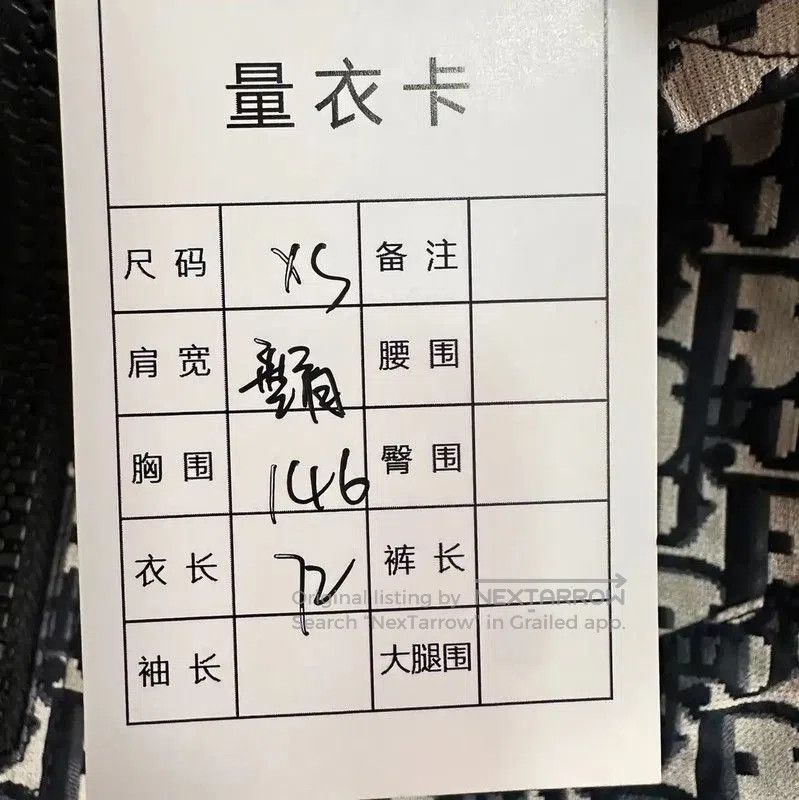 量衣卡
尺码 XS 备注
肩宽 腰围
胸围 146 臀围
衣长 72 裤长
袖长 大腿围
Original listing by NEXTARROW
Search "NexTarrow" in Grailed app.